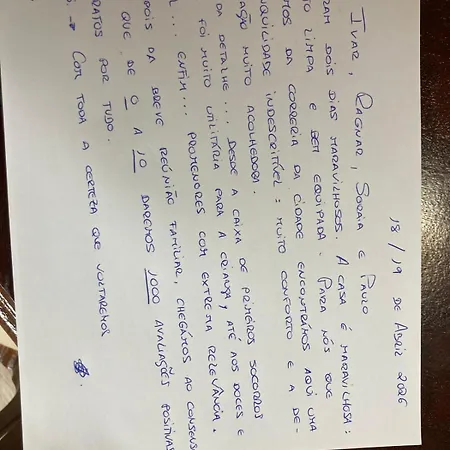 18/19 DE ABRIL 2026
IVAR, RAGNAR, SORAIA E PAULO
RAM DOIS DIAS MARAVILHOSOS. A CASA É MARAVILHOSA:
TO LIMPA E BEM EQUIPADA. PARA NÓS QUE
MOS DA CORRERIA DA CIDADE ENCONTRÁMOS AQUI UMA
NQUILIDADE INDESCRITÍVEL: MUITO CONFORTO E A DE-
AÇÃO MUITO ACOLHEDORA.
DA DETALHE... DESDE A CAIXA DE PRIMEIROS SOCORROS
FOI MUITO UTILITÁRIA PARA A CRIANÇA, ATÉ AOS DOCES E
L... ENFIM... PROMENORES COM EXTREMA RELEVÂNCIA.
POIS DA BREVE REUNIÃO FAMILIAR, CHEGÁMOS AO CONSENS
QUE DE 0 A 10 DAREMOS 1000 AVALIAÇÕES POSITIVAS
RATOS POR TUDO.
S. → COM TODA A CERTEZA QUE VOLTAREMOS